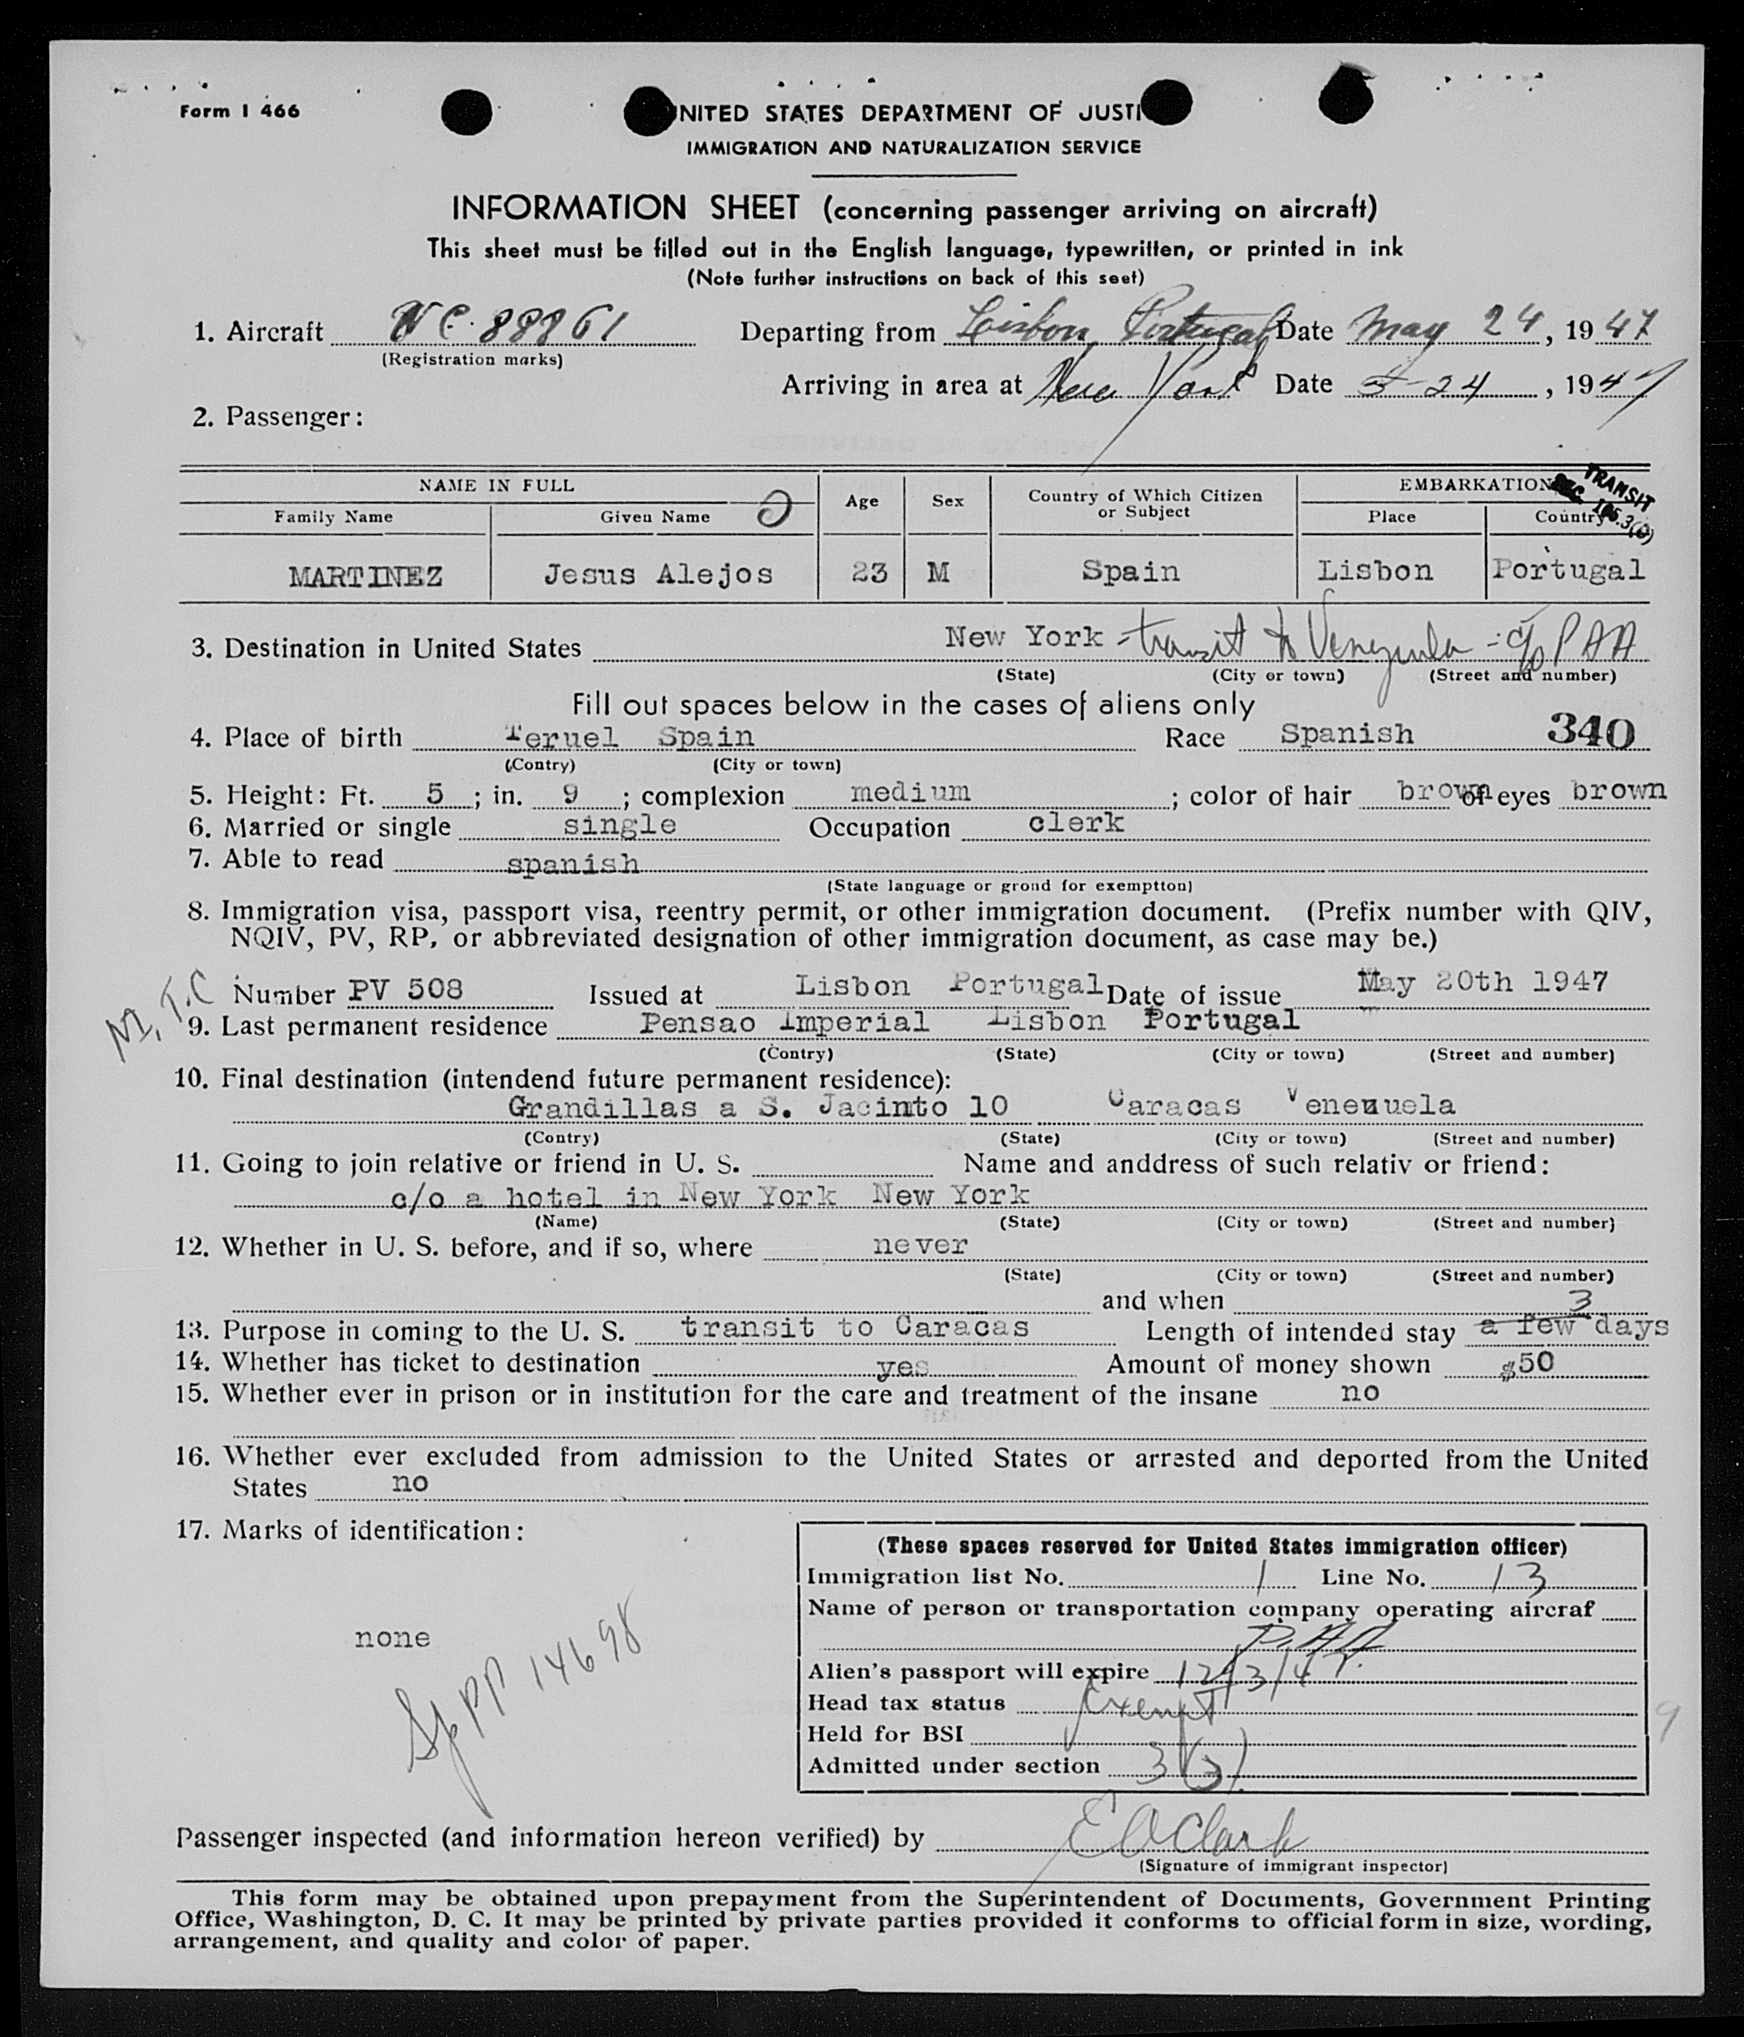 Form I 466
UNITED STATES DEPARTMENT OF JUSTI
IMMIGRATION AND NATURALIZATION SERVICE
INFORMATION SHEET (concerning passenger arriving on aircraft)
This sheet must be filled out in the English language, typewritten, or printed in ink
(Note further instructions on back of this seet)
1. Aircraft NC 88861 Departing from Lisbon, Portugal Date May 24, 1947
(Registration marks)
Arriving in area at New York Date 5-24, 1947
2. Passenger:
NAME IN FULL Age Sex Country of Which Citizen or Subject EMBARKATION
TRANSIT
SEC. 165.3(b)
Family Name Given Name Place Country
MARTINEZ Jesus Alejos 23 M Spain Lisbon Portugal
3. Destination in United States New York - transit to Venezuela - c/o PAA
(State) (City or town) (Street and number)
Fill out spaces below in the cases of aliens only
4. Place of birth Teruel Spain Race Spanish 340
(Contry) (City or town)
5. Height: Ft. 5; in. 9; complexion medium; color of hair brown of eyes brown
6. Married or single single Occupation clerk
7. Able to read spanish
(State language or grond for exemptton)
8. Immigration visa, passport visa, reentry permit, or other immigration document. (Prefix number with QIV,
NQIV, PV, RP, or abbreviated designation of other immigration document, as case may be.)
Number PV 508 Issued at Lisbon Portugal Date of issue May 20th 1947
9. Last permanent residence Pensao Imperial Lisbon Portugal
(Contry) (State) (City or town) (Street and number)
10. Final destination (intendend future permanent residence):
Grandillas a S. Jacinto 10 Caracas Venezuela
(Contry) (State) (City or town) (Street and number)
11. Going to join relative or friend in U. S. Name and anddress of such relativ or friend:
c/o a hotel in New York New York
(Name) (State) (City or town) (Street and number)
12. Whether in U. S. before, and if so, where never
(State) (City or town) (Street and number)
and when
13. Purpose in coming to the U. S. transit to Caracas Length of intended stay 3 a few days
14. Whether has ticket to destination yes Amount of money shown $50
15. Whether ever in prison or in institution for the care and treatment of the insane no
16. Whether ever excluded from admission to the United States or arrested and deported from the United
States no
17. Marks of identification:
none
Sp PP 14698
(These spaces reserved for United States immigration officer)
Immigration list No. 1 Line No. 13
Name of person or transportation company operating aircraf
P.AA
Alien's passport will expire 12/3/47.
Head tax status Exempt
Held for BSI
Admitted under section 3(3)
9
Passenger inspected (and information hereon verified) by E O Clark
(Signature of immigrant inspector)
This form may be obtained upon prepayment from the Superintendent of Documents, Government Printing
Office, Washington, D. C. It may be printed by private parties provided it conforms to official form in size, wording,
arrangement, and quality and color of paper.